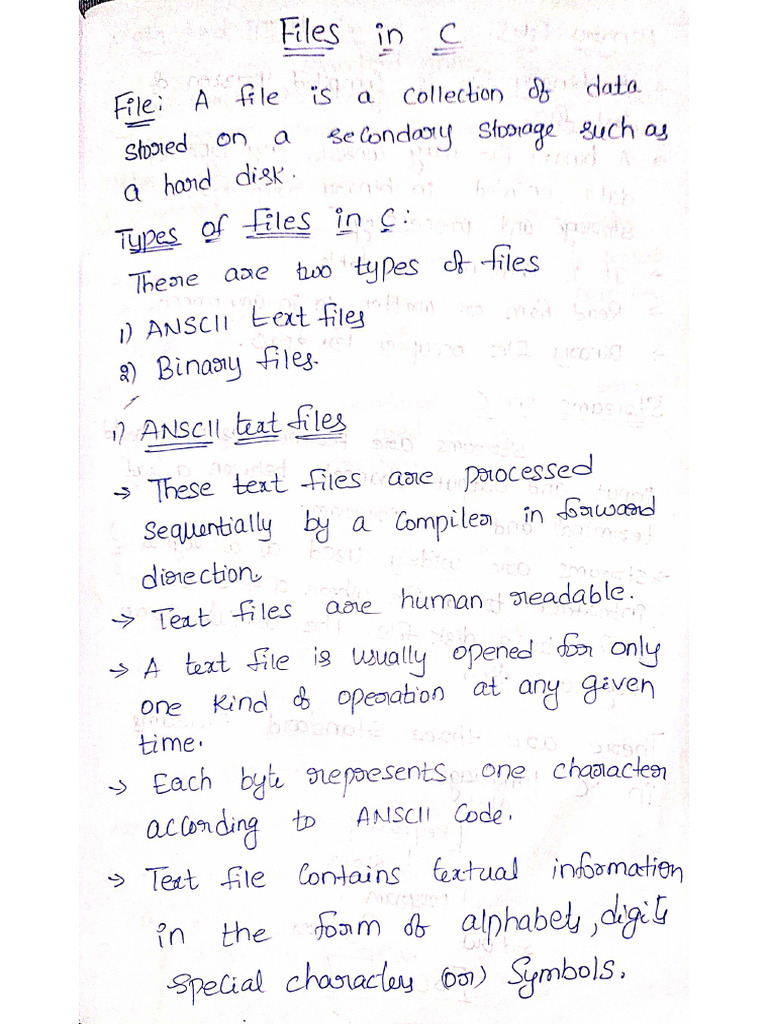 Files in C
File: A file is a collection of data
stored on a secondary storage such as
a hard disk.
Types of files in C:
There are two types of files
1) ANSCII text files
2) Binary files.
1) ANSCII text files
→ These text files are processed
sequentially by a compiler in forward
direction
→ Text files are human readable.
→ A text file is usually opened for only
one kind of operation at any given
time.
→ Each byte represents one character
according to ANSCII Code.
→ Text file contains textual information
in the form of alphabets, digits
special characters (or) Symbols.